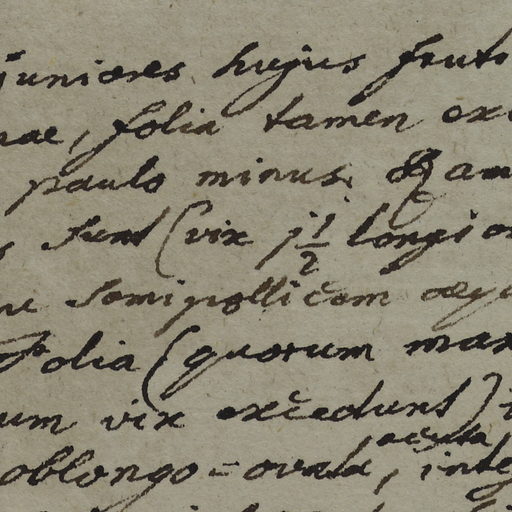 juniores hujus frut
nae, folia tamen ex
paulo minus & am
s sunt (vix j 1/2 longio
semipollicem aequ
Folia (quorum max
um vix excedunt)
acuta
oblongo=ovata, integ